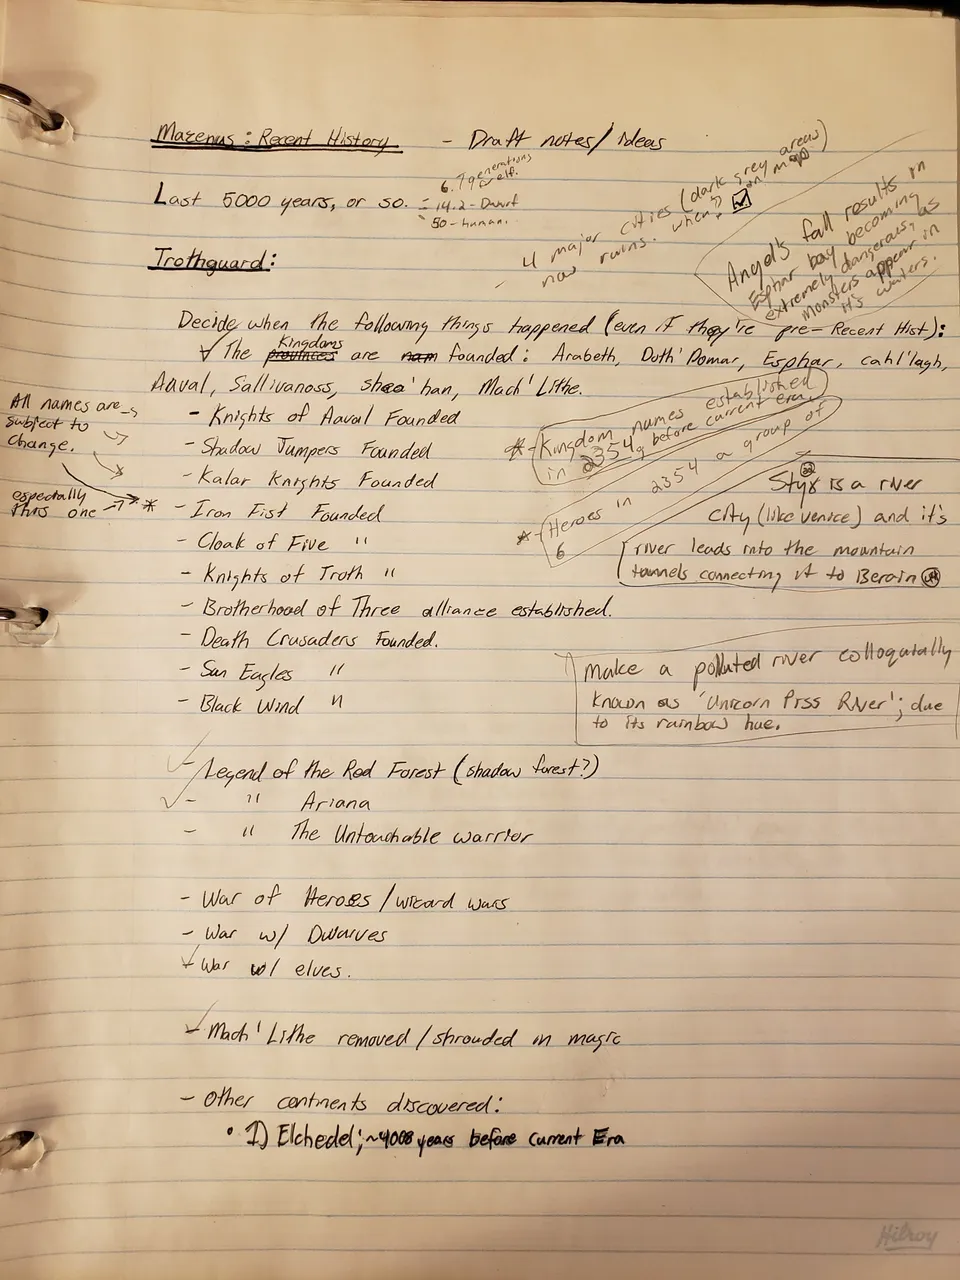 Mazenus: Recent History - Draft notes/Ideas
Last 5000 years, or so. = 6.7 generations elf.
= 14.2 - Dwarf
50 - human.
- 4 major cities (dark grey areas on map)
now ruins. when? ☑
Angel's fall results in
Esphar bay becoming
extremely dangerous, as
monsters appear in
it's waters.
Trothguard:
Decide when the following things happened (even if they're pre-Recent Hist):
✓ The provinces Kingdoms are nam founded: Arabeth, Duth'Domar, Esphar, cahl'lagh,
Aaval, Sallivanoss, shaa'han, Mach'Lithe.
All names are
subject to
change.
especially
this one → *
- Knights of Aaval Founded
- Shadow Jumpers Founded
- Kalar Knights Founded
* - Iron Fist Founded
- Cloak of Five "
- Knights of Troth "
- Brotherhood of Three alliance established.
- Death Crusaders Founded.
- Sun Eagles "
- Black Wind "
* - Kingdom names established
in 2354 before current era.
* - Heroes in 2354 a group of
6
Styx is a river
city (like venice) and it's
river leads into the mountain
tunnels connecting it to Berain
Make a polluted river colloquially
known as 'Unicorn Piss River'; due
to its rainbow hue.
✓ Legend of the Red Forest (shadow forest?)
✓ - " Ariana
- " The Untouchable warrior
- War of Heroes/wizard wars
- War w/ Dwarves
✓ War w/ elves.
✓ Mach'Lithe removed/shrouded in magic
- Other continents discovered:
• 1) Elchedel; ~4008 years before current Era
Hilroy